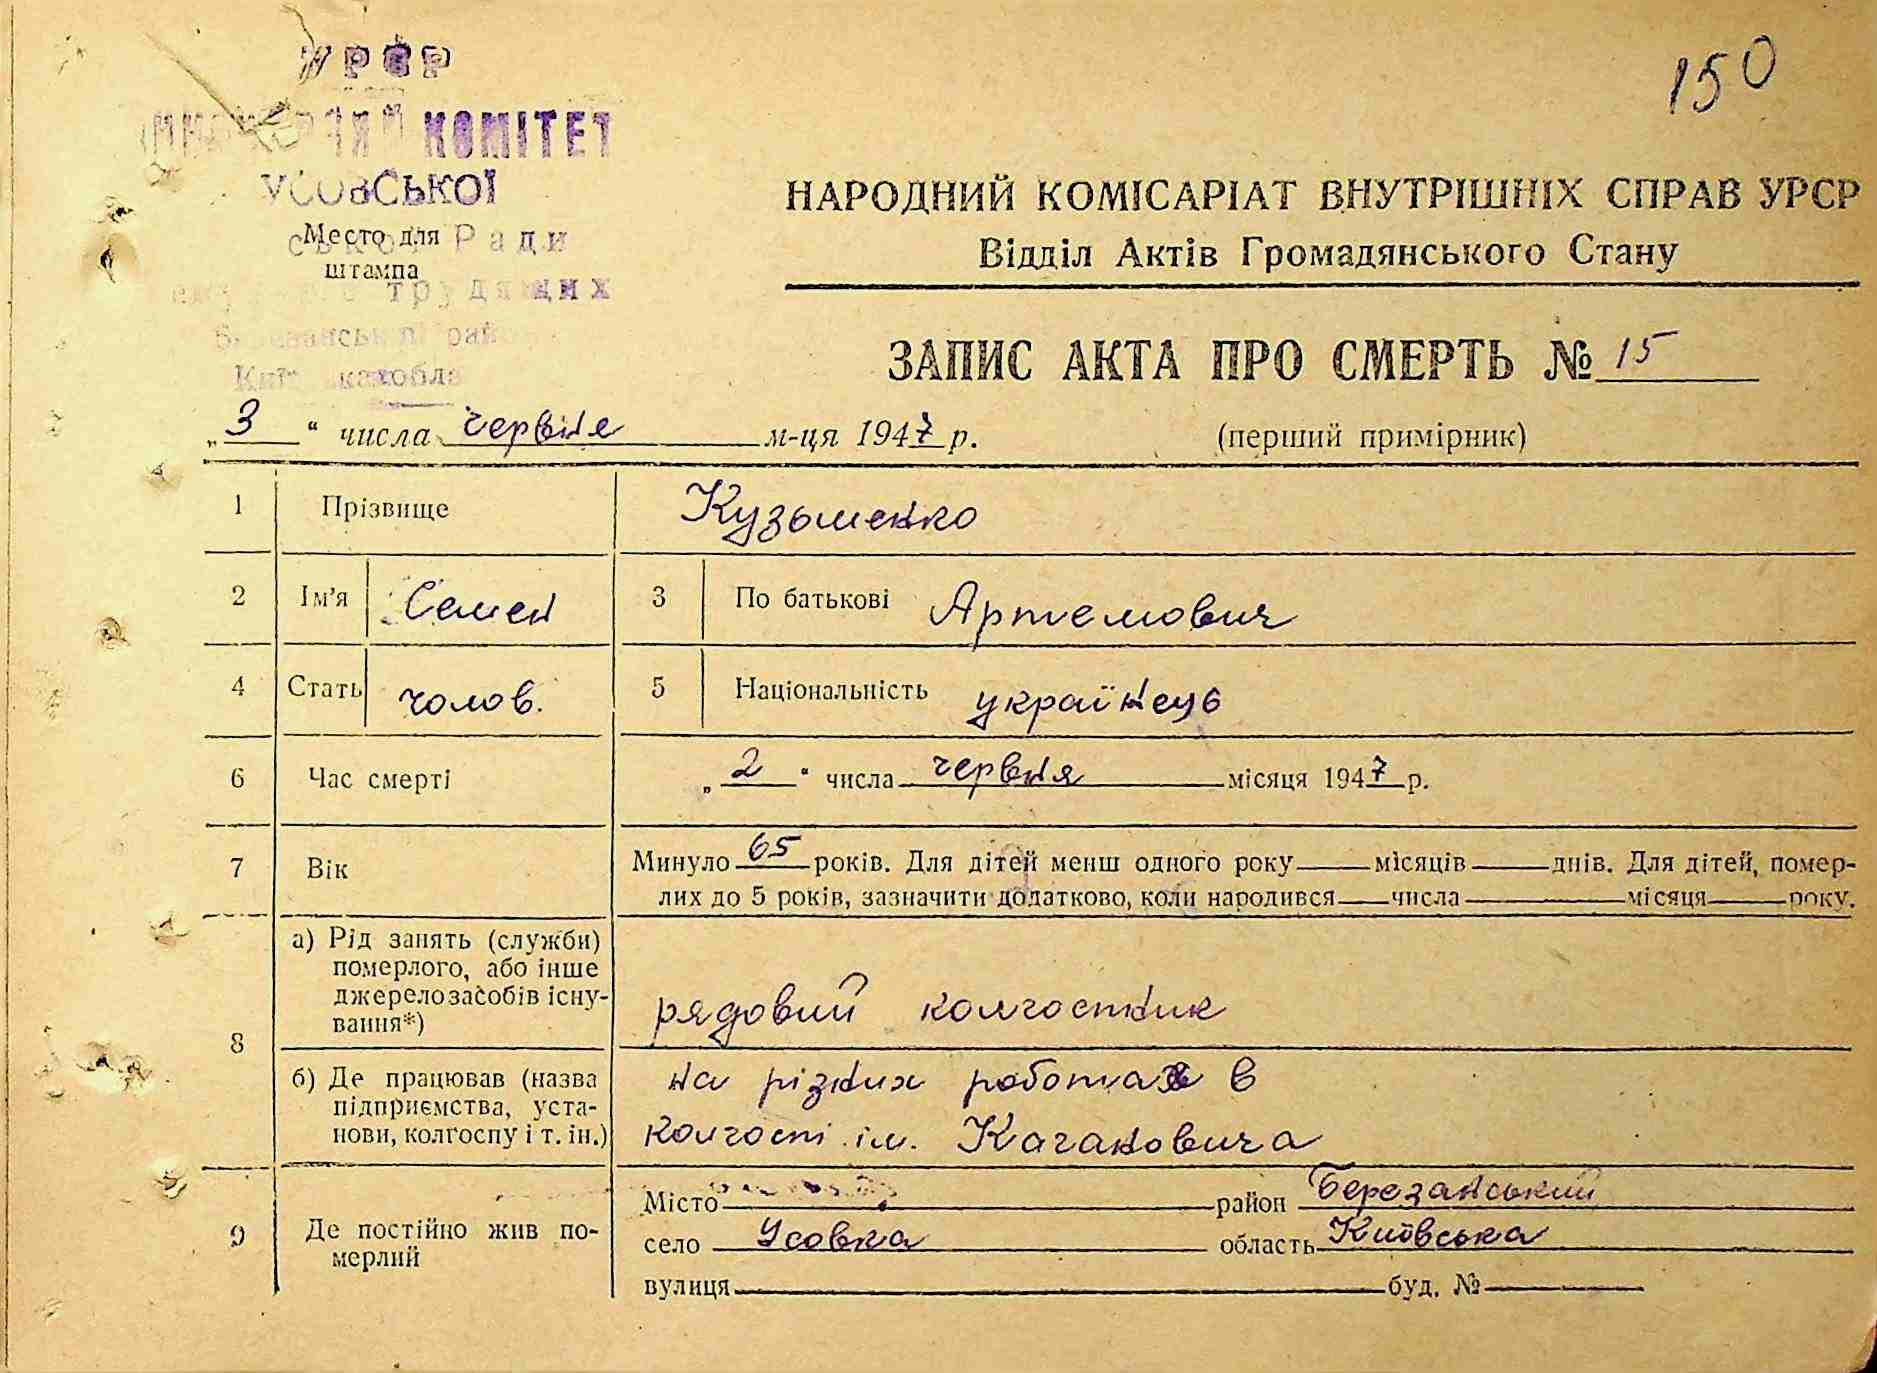 УРСР
150
КОМІТЕТ
УСОВСЬКОЇ
НАРОДНИЙ КОМІСАРІАТ ВНУТРІШНІХ СПРАВ УРСР
Место для Ради
Відділ Актів Громадянського Стану
штампа
трудящих
ЗАПИС АКТА ПРО СМЕРТЬ № 15
„3“ числа червня м-ця 1947 р. (перший примірник)
1 Прізвище Кузьменко
2 Ім'я Семен 3 По батькові Артемович
4 Стать чолов. 5 Національність українець
6 Час смерті „2“ числа червня місяця 1947 р.
7 Вік Минуло 65 років. Для дітей менш одного року місяців днів. Для дітей, помер-
лих до 5 років, зазначити додатково, коли народився числа місяця року.
8 а) Рід занять (служби)
померлого, або інше
джерело засобів існу-
вання*)
рядовий колгоспник
б) Де працював (назва
підприємства, уста-
нови, колгоспу і т. ін.)
на різних роботах в
колгоспі ім. Кагановича
9 Де постійно жив по-
мерлий
Місто район Березанський
село Усовка область Київська
вулиця буд. №